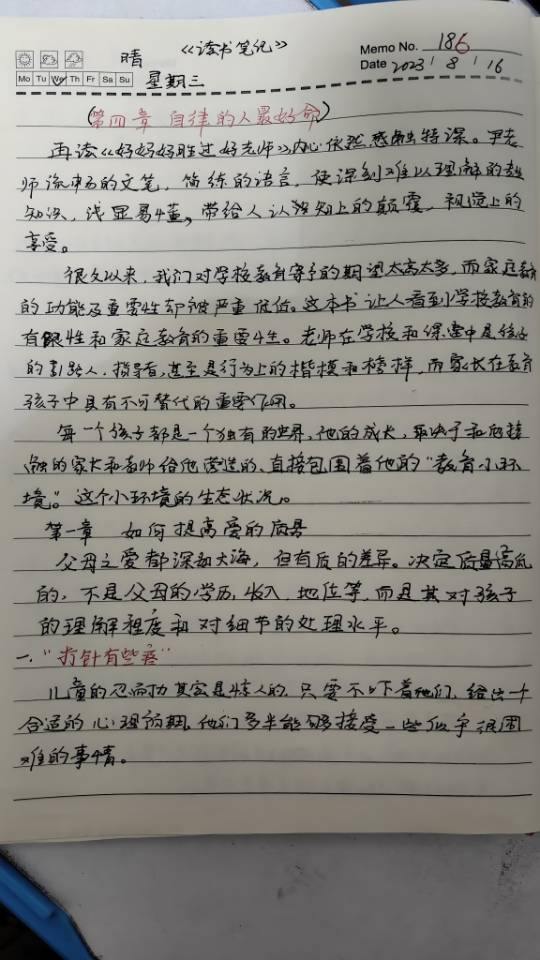 晴 《读书笔记》 Memo No. 186
Mo Tu We Th Fr Sa Su 星期三 Date 2023 / 8 / 16
(第四章 自律的人最好命)
再读《好妈妈胜过好老师》内心依然感触特深。尹老
师流畅的文笔，简练的语言，使深刻难以理解的教
知识，浅显易懂，带给人认知上的颠覆，视觉上的
享受。
很久以来，我们对学校教育寄予的期望太高太多，而家庭教育
的功能及重要性却被严重低估。这本书让人看到学校教育的
有限性和家庭教育的重要性。老师在学校和课堂中是孩子
的引路人，指导者，甚至是行为上的楷模和榜样，而家长在教育
孩子中具有不可替代的重要作用。
每一个孩子都是一个独有的世界，他的成长，取决于和他接
触的家长和教师给他营造的、直接包围着他的“教育小环
境。”这个小环境的生态状况。
第一章 如何提高爱的质量
父母之爱都深如大海，但有质的差异。决定质量高低
的，不是父母的学历，收入，地位等，而是其对孩子
的理解程度和对细节的处理水平。
一.“打针有些疼”
儿童的忍耐力其实是惊人的，只要不吓着他们，给出一个
合适的心理预期，他们多半能够接受一些似乎很困
难的事情。